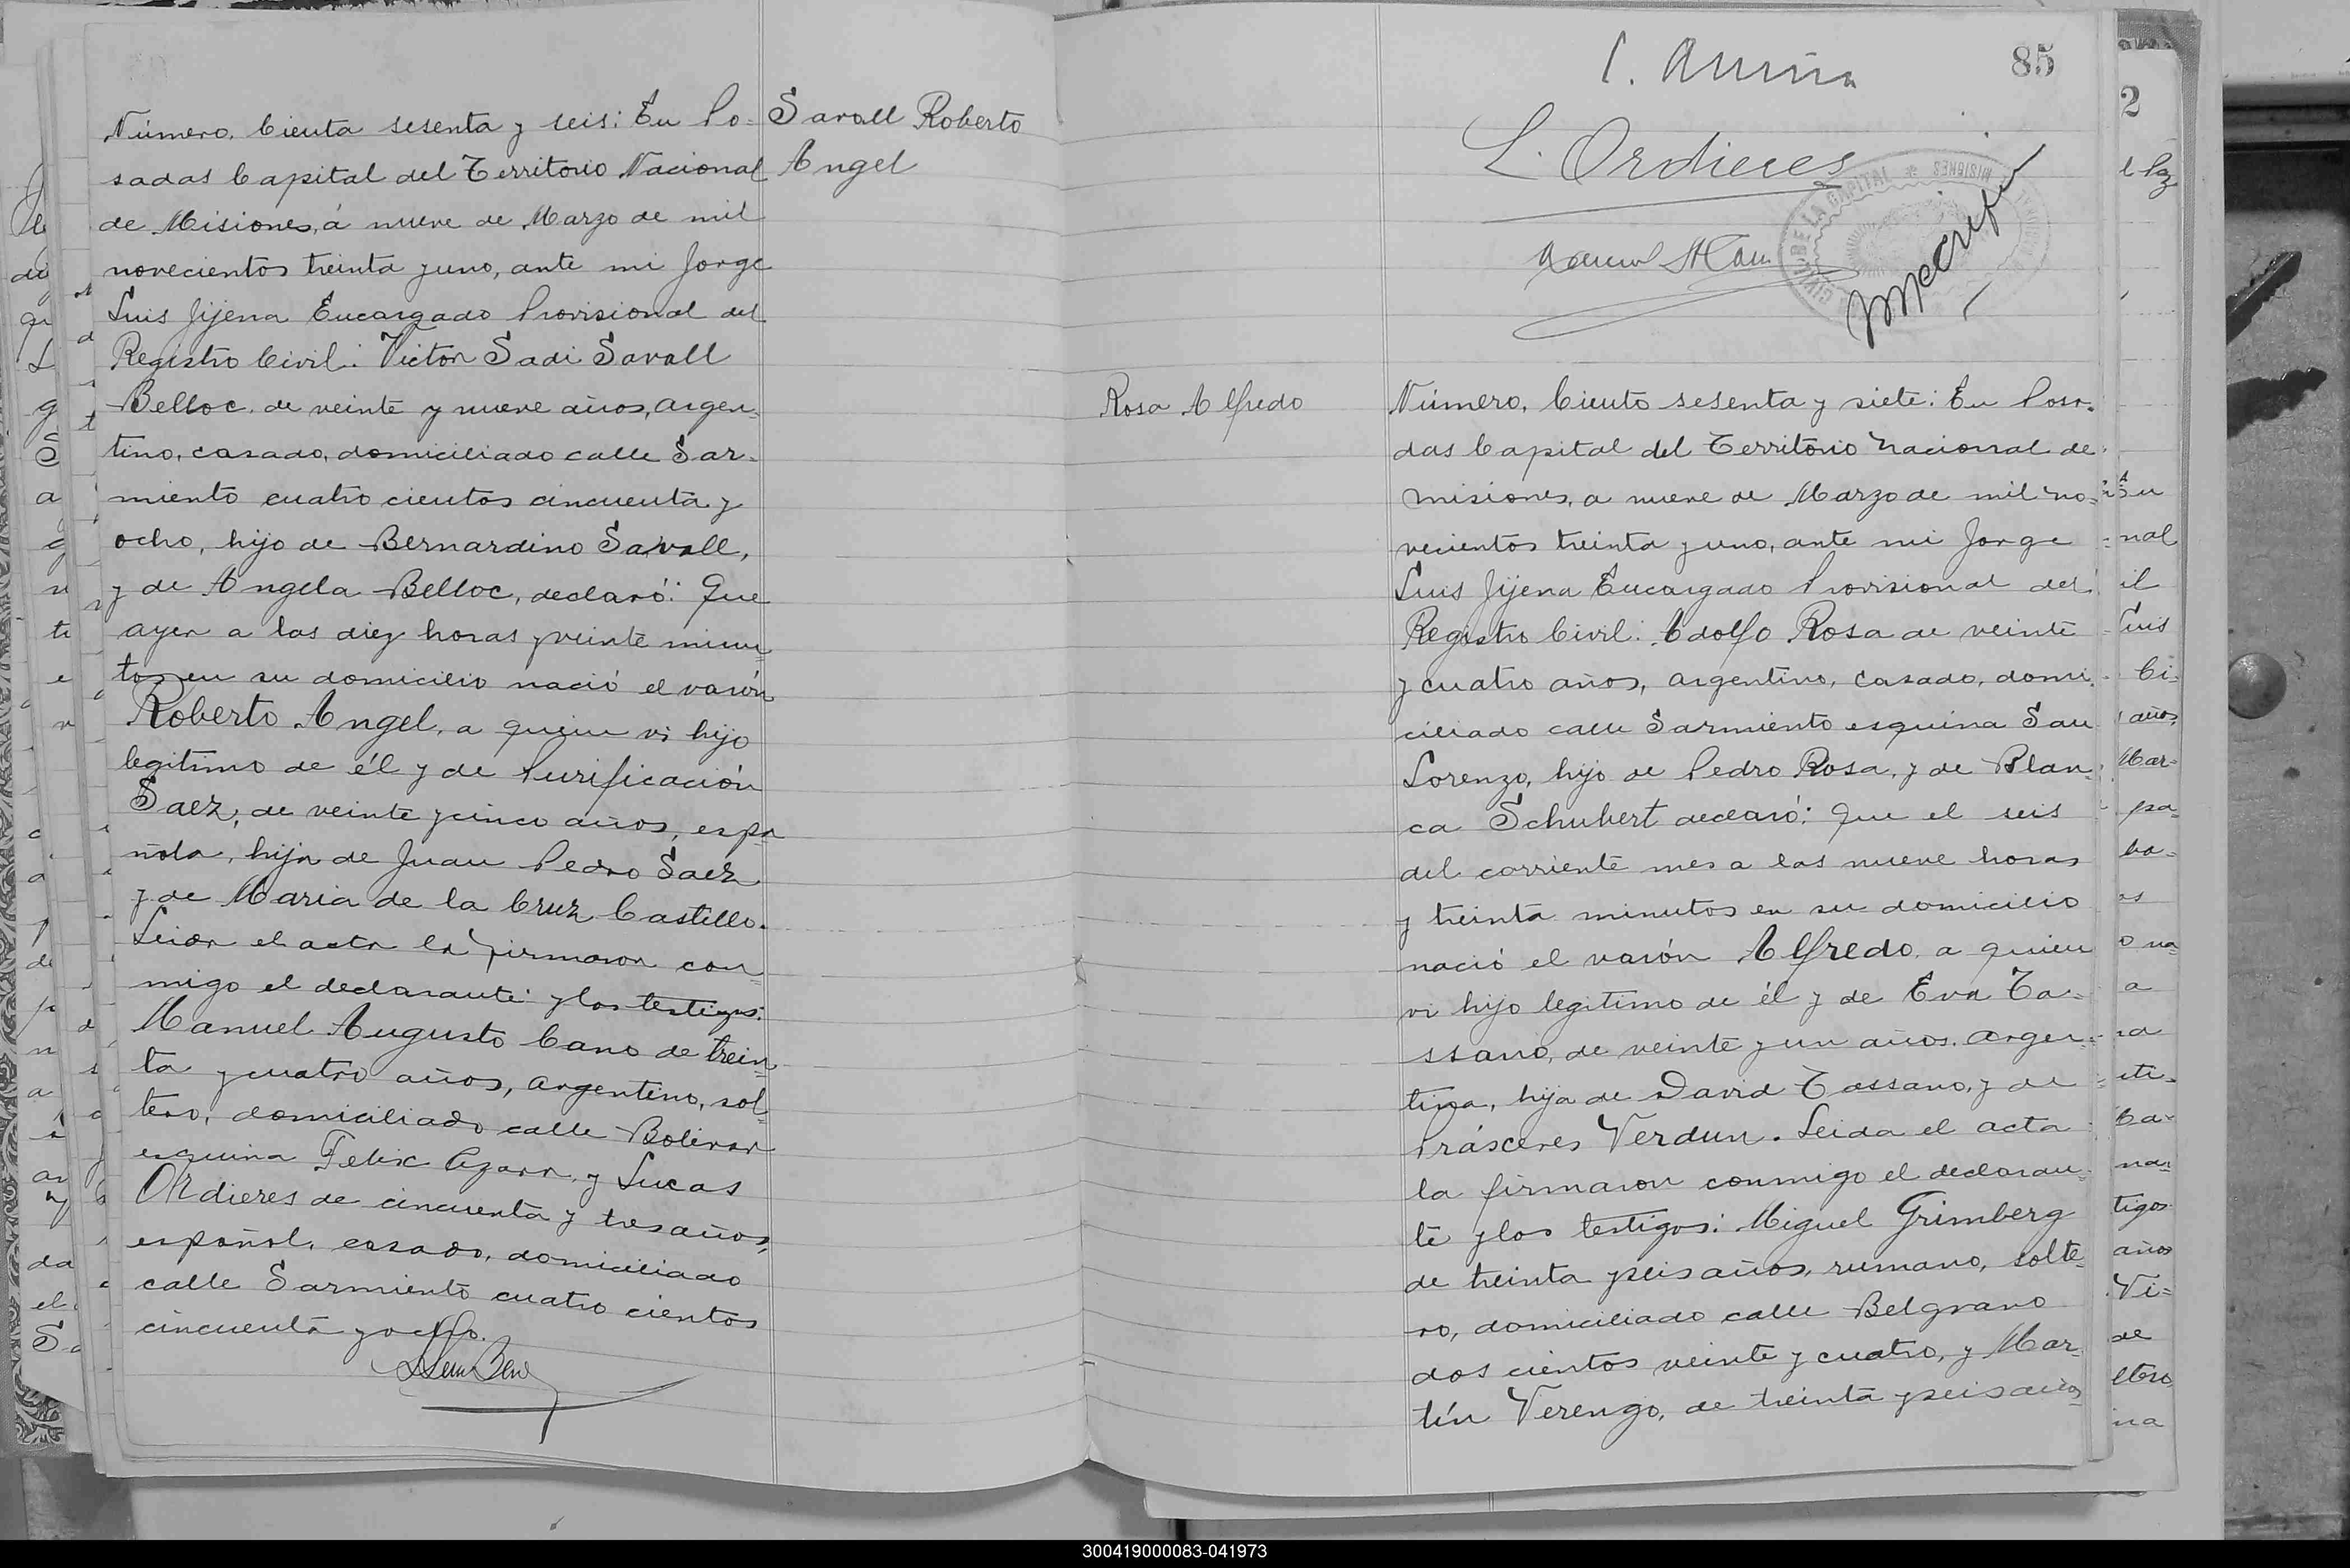 Número, Cienta sesenta y seis: En Po-
sadas Capital del Territorio Nacional
de Misiones, á nueve de Marzo de mil
novecientos treinta y uno, ante mi Jorge
Luis Jijena Encargado Provisional del
Registro Civil: Victor Sadi Savall
Belloc, de veinte y nueve años, argen-
tino, casado, domiciliado calle Sar-
miento cuatro cientos cincuenta y
ocho, hijo de Bernardino Savall,
y de Angela Belloc, declaró: Que
ayer a las diez horas y veinte minu-
tos en su domicilio nació el varón
Roberto Angel, a quien vi hijo
legitimo de él y de Purificación
Saez, de veinte y cinco años, espa
ñola, hija de Juan Pedro Saez
y de Maria de la Cruz Castillo.
Leida el acta la firmaron con
migo el declarante y los testigos:
Manuel Augusto Cano de trein-
ta y cuatro años, argentino, sol-
tero, domiciliado calle Bolivar
esquina Felix Azara, y Lucas
Ordieres de cincuenta y tres años,
español, casado, domiciliado
calle Sarmiento cuatro cientos
cincuenta y ocho.
Savall Roberto
Angel
85
L. Ordieres
CIVIL DE LA CAPITAL * MISIONES
Rosa Alfredo
Número, Ciento sesenta y siete: En Posa-
das Capital del Territorio Nacional de
misiones, a nueve de Marzo de mil no-
vecientos treinta y uno, ante mi Jorge
Luis Jijena Encargado Provisional del
Registro Civil: Adolfo Rosa de veinte
y cuatro años, argentino, casado, domi-
ciliado calle Sarmiento esquina San
Lorenzo, hijo de Pedro Rosa, y de Blan-
ca Schubert declaró: Que el seis
del corriente mes a las nueve horas
y treinta minutos en su domicilio
nació el varón Alfredo, a quien
vi hijo legitimo de él y de Eva Ta-
ssano, de veinte y un años, argen-
tina, hija de David Tassano, y de
Prásceres Verdun. Leida el acta
la firmaron conmigo el declaran-
te y los testigos: Miguel Grimberg
de treinta y seis años, rumano, solte-
ro, domiciliado calle Belgrano
dos cientos veinte y cuatro, y Mar-
tín Verengo, de treinta y seis años
300419000083-041973